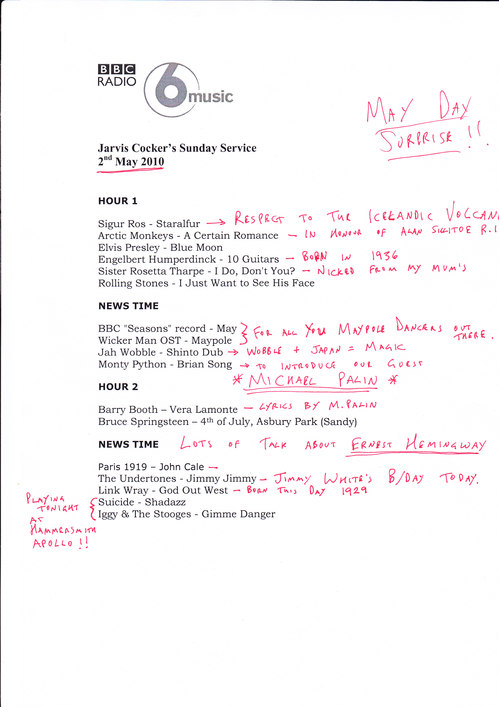 BBC
RADIO
6 music
MAY DAY
SURPRISE!!
Jarvis Cocker's Sunday Service
2nd May 2010
HOUR 1
Sigur Ros - Staralfur → RESPECT TO THE ICELANDIC VOLCAN
Arctic Monkeys - A Certain Romance - IN HONOUR OF ALAN SILLITOE R.I
Elvis Presley - Blue Moon
Engelbert Humperdinck - 10 Guitars - BORN IN 1936
Sister Rosetta Tharpe - I Do, Don't You? - NICKED FROM MY MUM'S
Rolling Stones - I Just Want to See His Face
NEWS TIME
BBC "Seasons" record - May } FOR ALL YOU MAYPOLE DANCERS OUT
Wicker Man OST - Maypole } THERE.
Jah Wobble - Shinto Dub → WOBBLE + JAPAN = MAGIC
Monty Python - Brian Song → TO INTRODUCE OUR GUEST
* MICHAEL PALIN *
HOUR 2
Barry Booth – Vera Lamonte - LYRICS BY M. PALIN
Bruce Springsteen – 4th of July, Asbury Park (Sandy)
NEWS TIME LOTS OF TALK ABOUT ERNEST HEMINGWAY
Paris 1919 – John Cale →
The Undertones - Jimmy Jimmy - JIMMY WHITE'S B/DAY TODAY.
Link Wray - God Out West - BORN THIS DAY 1929
Suicide - Shadazz
Iggy & The Stooges - Gimme Danger
PLAYING
TONIGHT
AT
HAMMERSMITH
APOLLO!!